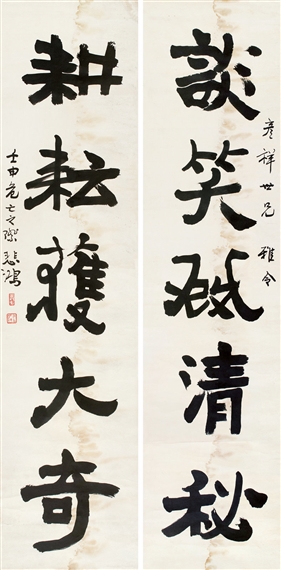 彥祥世兄雅令
談笑清秘
耕耘獲大奇
壬申危亡之際悲鴻